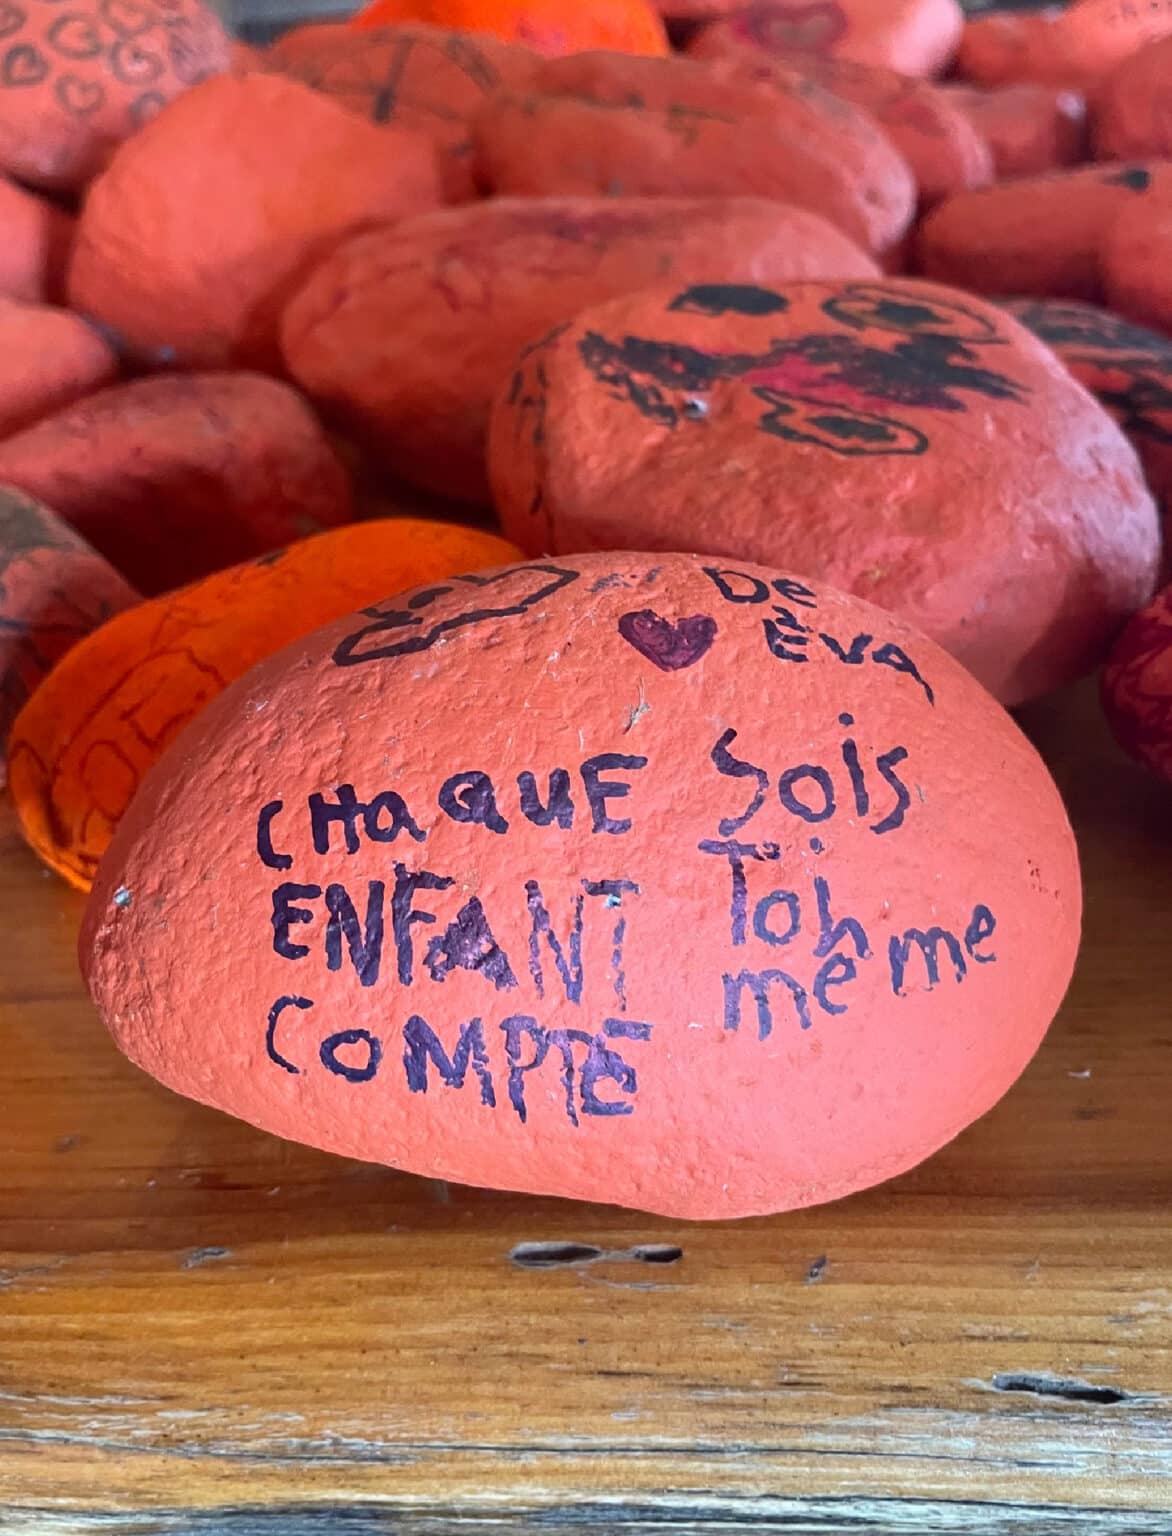 De
ÈVA
CHaQUE
ENFANT
COMPTE
Sois
Toi
même